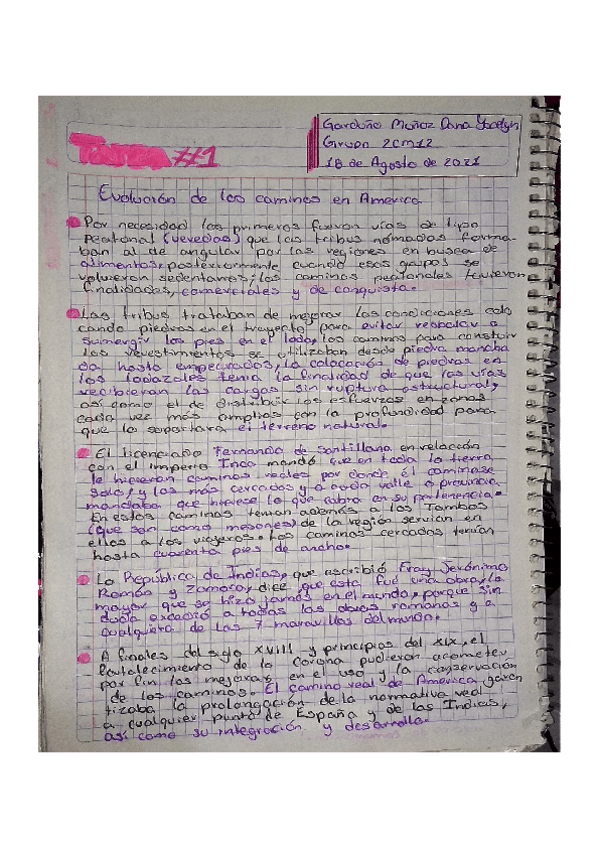 Garduño Muñoz Dana Yocelyn
Tarea #1
Grupo 2CM12
18 de Agosto de 2021
Evolución de los caminos en America
Por necesidad los primeros fueron vías de tipo
peatonal (veredas) que las tribus nómadas forma-
ban al de angular por las regiones en busca de
alimentos, posteriormente cuando esos grupos se
volvieron sedentarios; los caminos peatonales tuvieron
finalidades, comerciales y de conquista.
Las tribus trataban de mejorar las condiciones colo
cando piedras en el trayecto para evitar resbalar o
sumergir los pies en el lodo, los caminos para constuir
los revestimientos se utilizaban desde piedra machaca
da hasta empedrados, la colocación de piedras en
los lodazales tenia la finalidad de que las vías
recibieran las cargas sin ruptura estructural,
así como el de distribuir los esfuerzos en zonas
cada vez más amplias con la profundidad para
que lo soportara el terreno natural.
El licenciado Fernando de Santillana en relación
con el imperio Inca mandó que en toda la tierra
le hicieran caminos reales por donde él caminase
solo, y los más cercados y a cada valle o provincia
mandaba que hiciese lo que cabia en su pertenencia.
En estos caminos tenían además a los Tambos
(que son como mesones) de la región servían en
ellos a los viajeros. Los caminos cercados tenían
hasta cuarenta pies de ancho.
La República de Indias, que escribió Fray Jerónimo
Román y Zamora, dice que esta fué una obra, la
mayor que se hizo jamás en el mundo, porque sin
duda excedió a todas las obras romanas y a
cualquiera de las 7 maravillas del mundo.
A finales del siglo XVIII y principios del XIX, el
fortalecimiento de la Corona pudieron acometer
por fin las mejoras en el uso y la conservación
de los caminos. El camino real de America garan
tizaba la prolongación de la normativa real
a cualquier punto de España y de las Indias,
así como su integración y desarrollo.